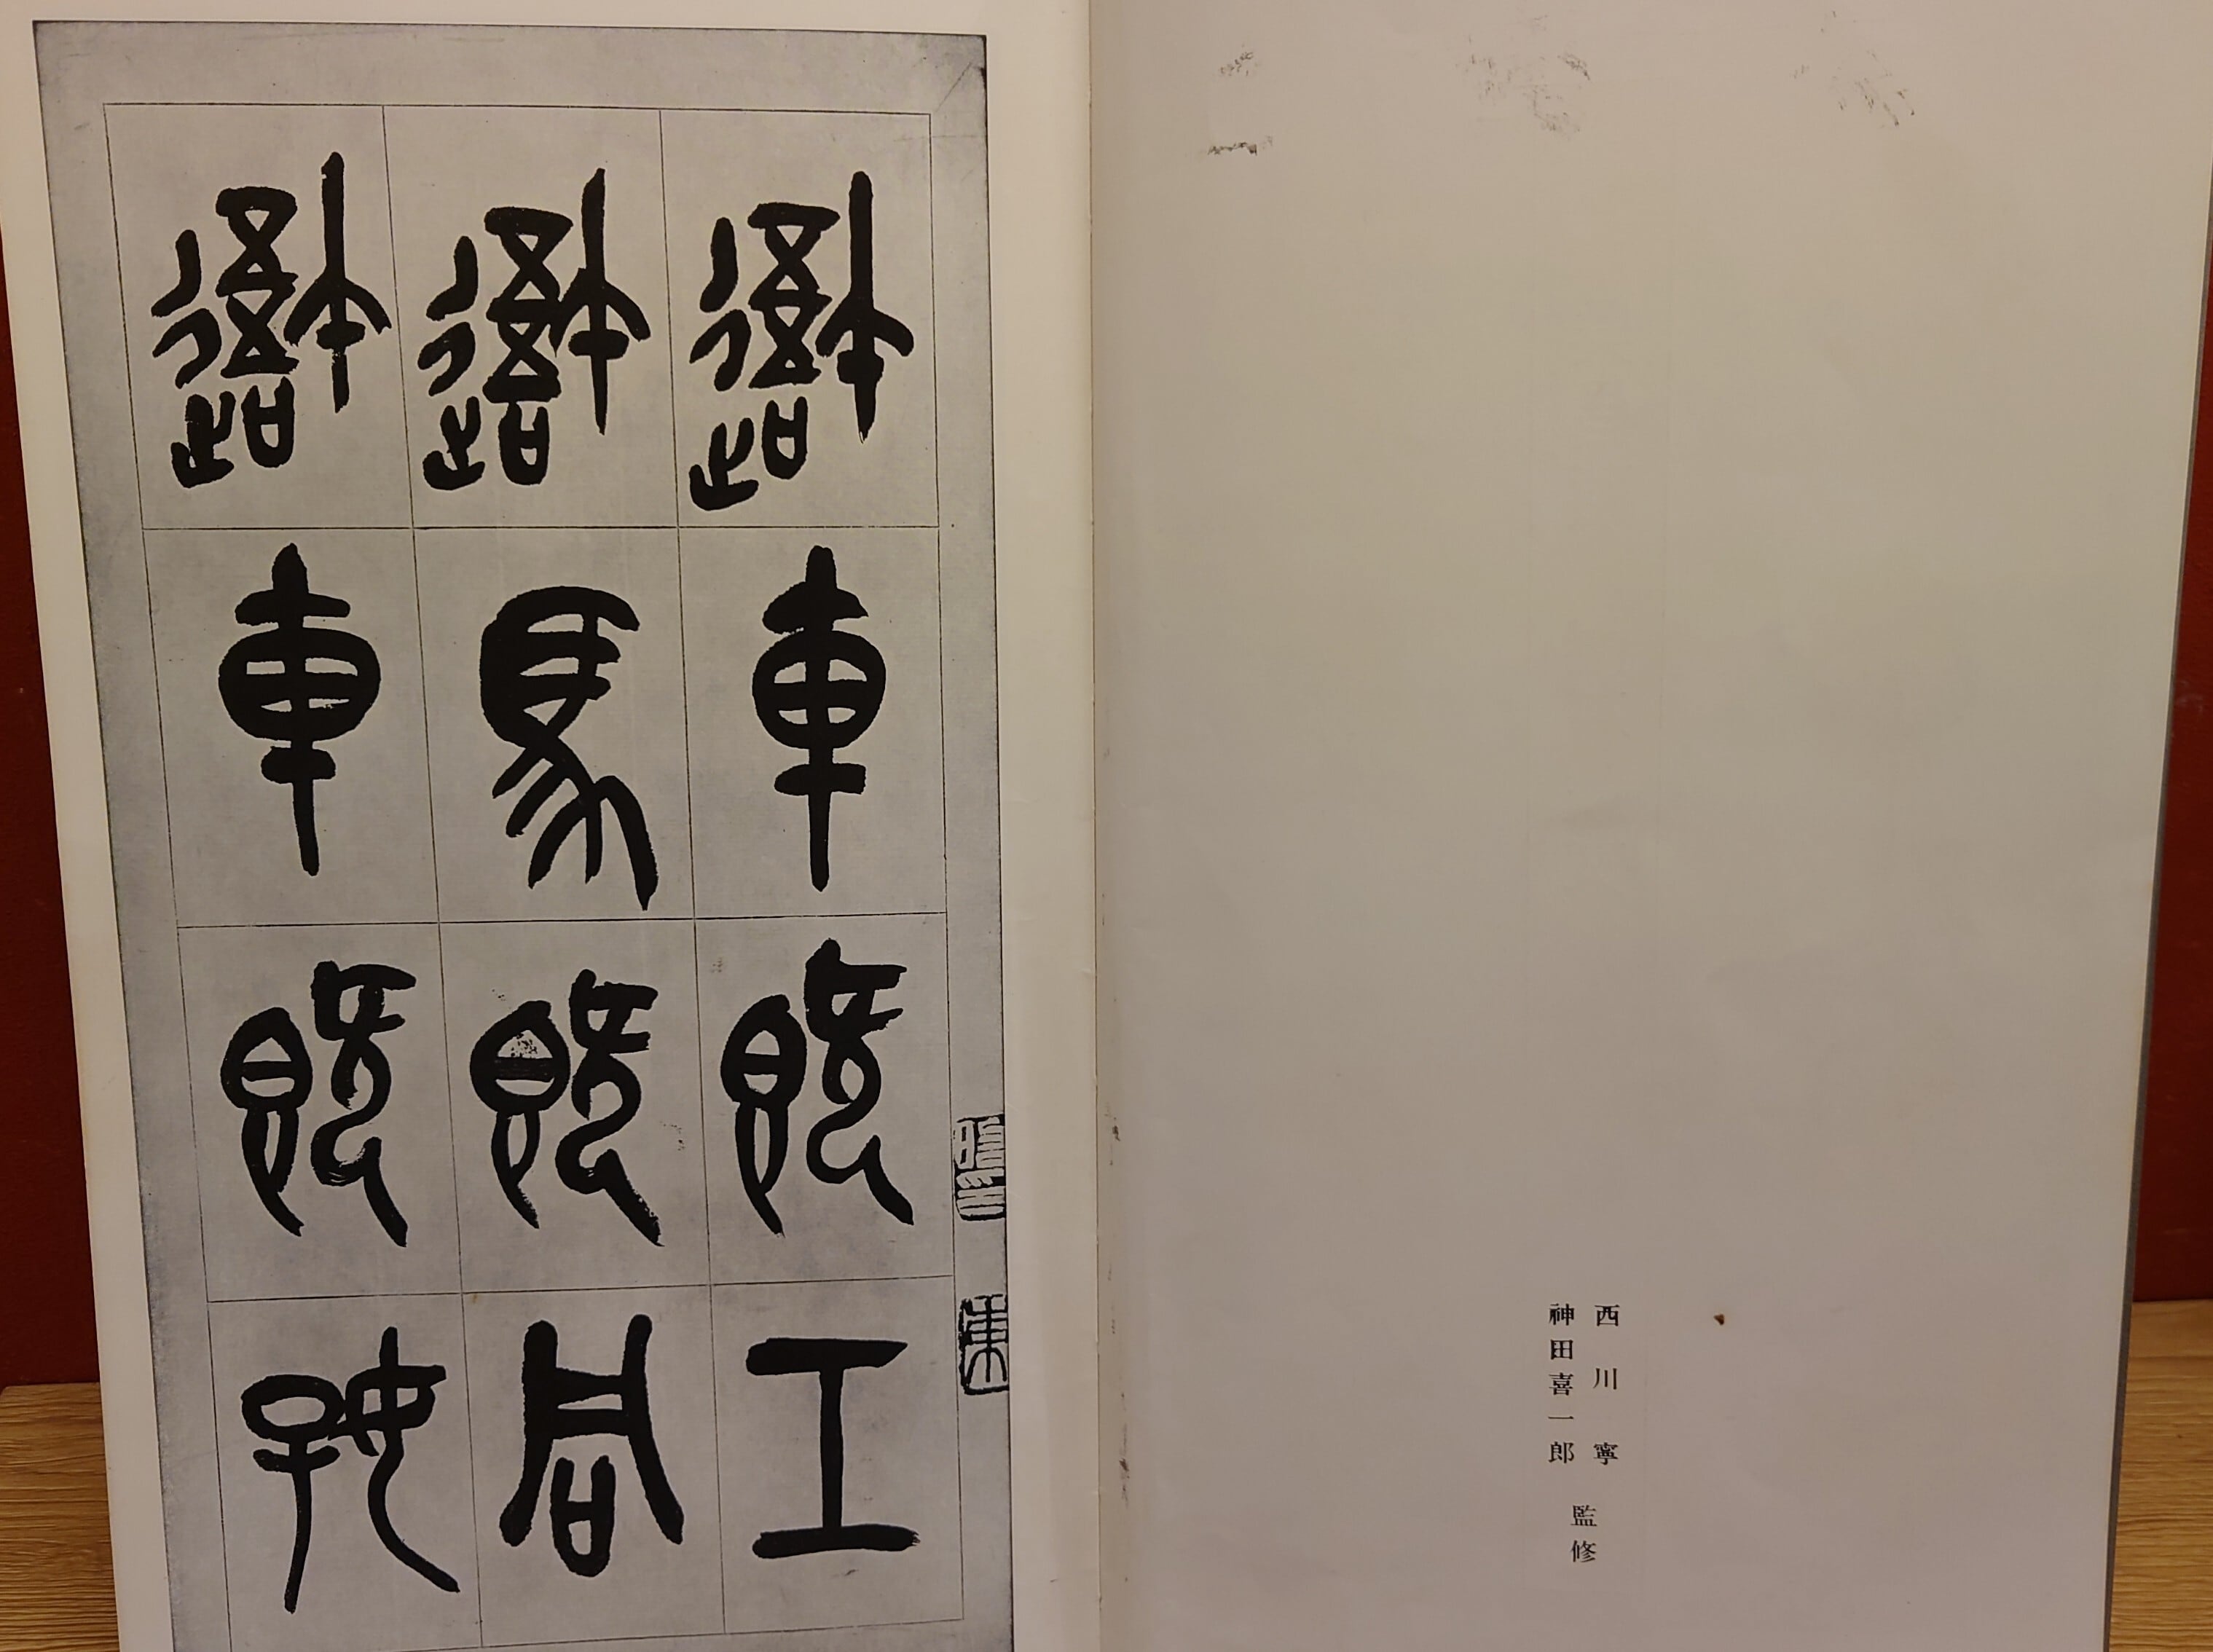 西川寧
神田喜一郎
監修
吾車既工
吾馬既同
吾車既好